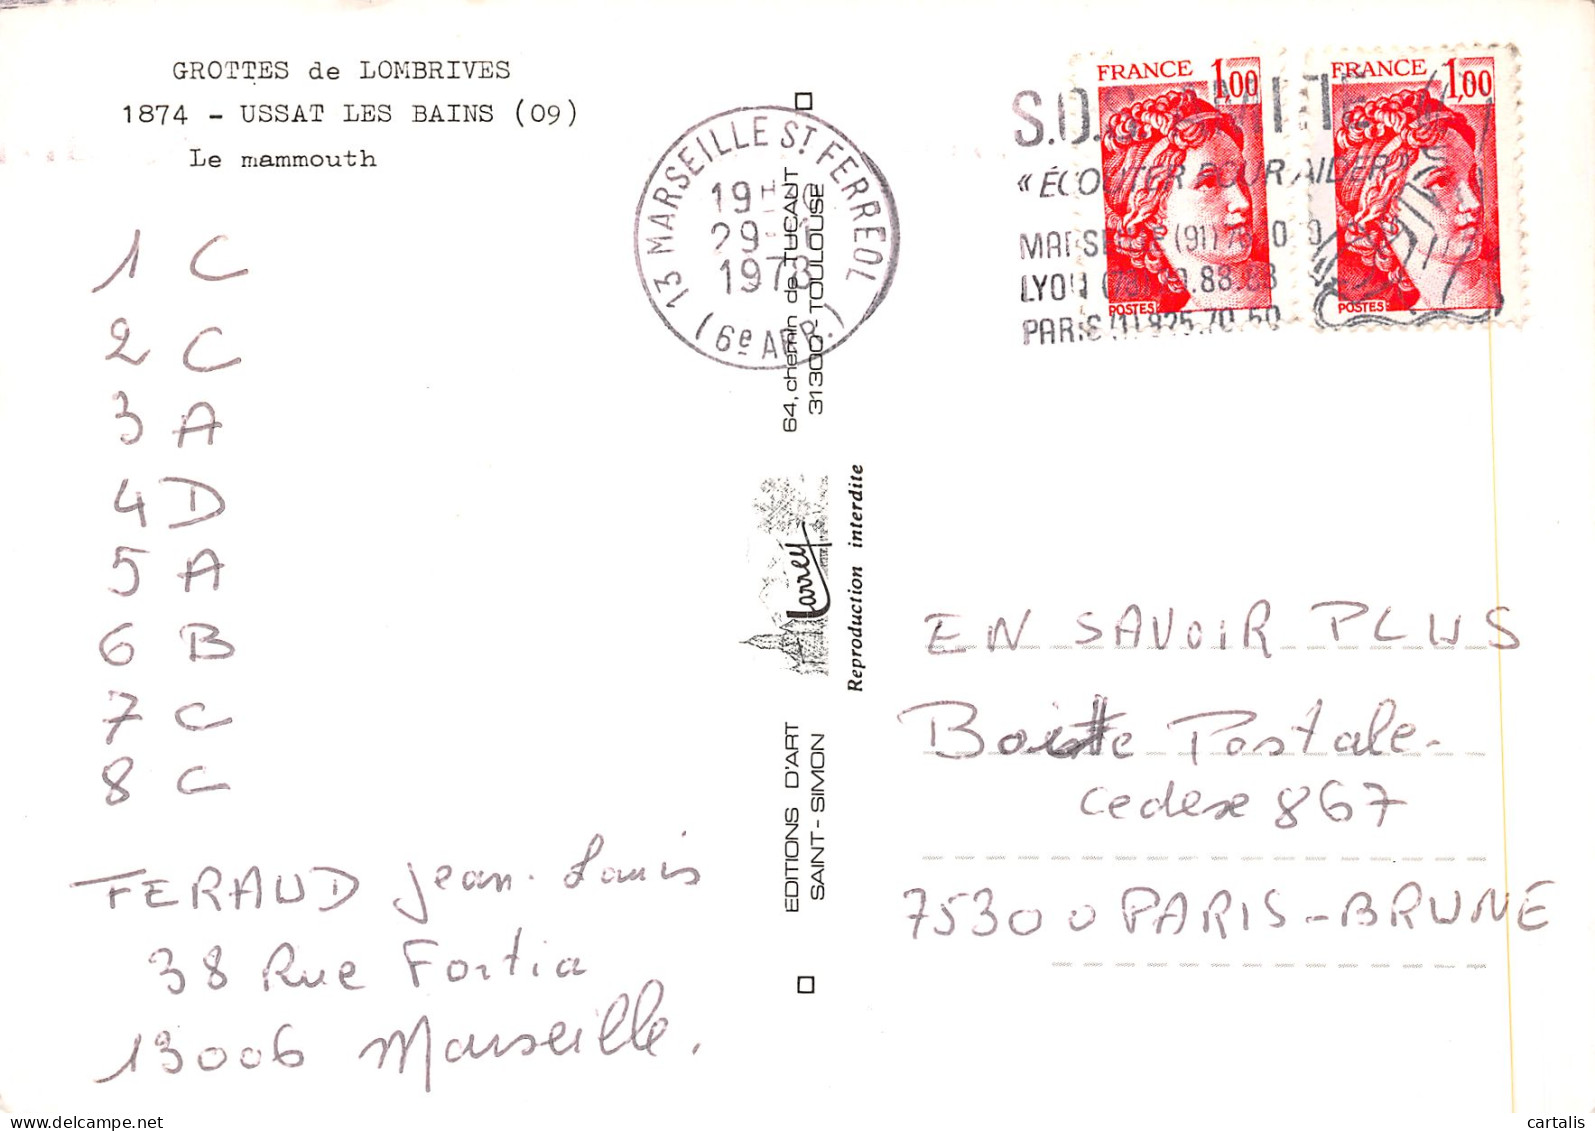 GROTTES de LOMBRIVES
1874 - USSAT LES BAINS (09)
Le mammouth
1 C
2 C
3 A
4 D
5 A
6 B
7 C
8 C
FERAUD Jean-Louis
38 Rue Fortia
13006 Marseille.
13 MARSEILLE ST FERREOL
19H
29-
1978
(6e ARR.)
64, chemin de TUCANT
31300-TOULOUSE
Larrey
Reproduction interdite
EDITIONS D'ART
SAINT-SIMON
FRANCE 1,00
POSTES
FRANCE 1,00
POSTES
S.O.S.
« ÉCOUTER POUR AIDER »
MARSEILLE (91)
LYON
PARIS (1) 825.70.50
EN SAVOIR PLUS
Boitte Postale-
cedexe 867
75300 PARIS-BRUNE
cartalis